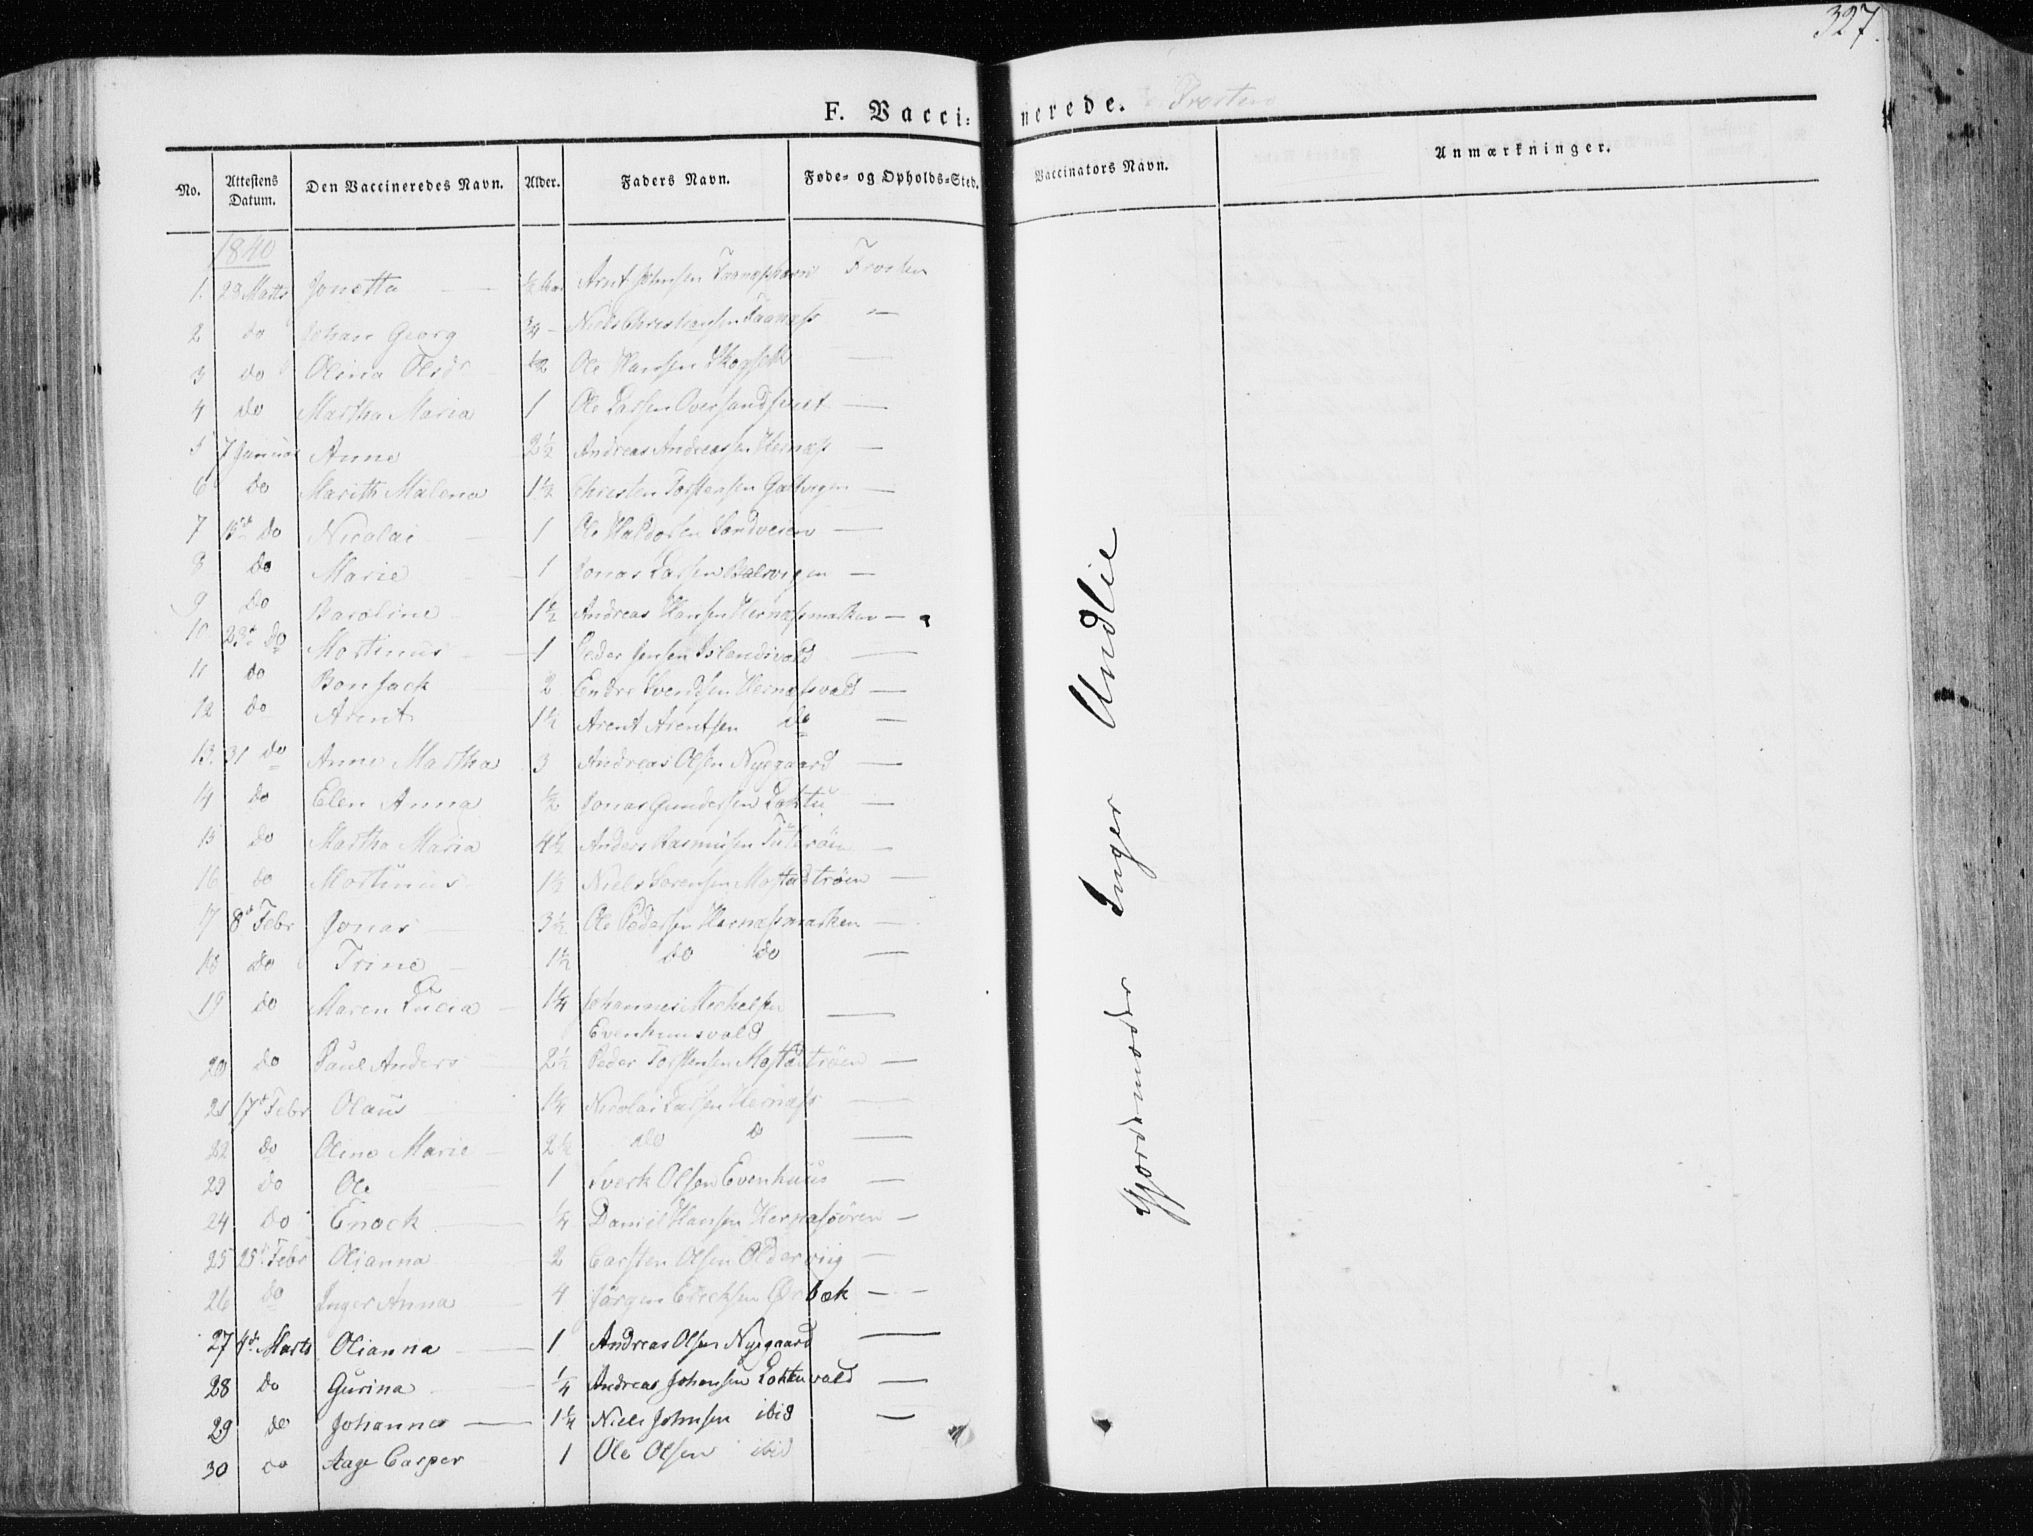 327.
F. Vaccinerede. Frosten
No. Attestens Datum. Den Vaccineredes Navn. Alder. Faders Navn. Føde- og Opholds-Sted. Vaccinators Navn. Anmærkninger.
1840
1. Jonetta Arnt Johnsen Frosten
2 do Johan Georg 3/4 —
3 do Olina Ols 1/2 Ole Hansen —
4 do Martha Maria 1 Ole Larsen —
5 7 Januar Anne 2½ Andreas Andreassen Hernæss —
6 do Marith Malena 1½ Christen Torstensen —
7 do Nicolai 1 Ole Haldorsen —
8 do Marie 1 Jonas Larsen —
9 do Caroline 1½ Andreas Hansen —
10 23de do Mortinus 1 Peder Jensen —
11 do Bonsach 2 Endre Svendsen Hernæssvald —
12 do Arent 1½ Arent Arentsen do —
13. 31 do Anne Martha 3 Andreas Olsen Nyegaard —
14 do Elen Anna ½ Jonas Gundersen Loktu —
15 do Martha Maria 4½ Anders Rasmusen —
16 do Mortinus 1½ Niels Sorensen Mostadtrøen —
17 8de Febr Jonas 3½ Ole Pedersen Hernæssmarken —
18 do Trine 1½ do do —
19 do Maren Lucia 1¼ Johannes
Evenhuusvald —
20 do Paul Anders 2½ Peder Torstensen Mostadtrøen —
21 17de Febr Olaus 1¼ Nicolai Larsen Hernæss —
22 do Oline Marie 2½ do d —
23 do Ole 1 Sverk Olsen Evenhuus —
24 do Enock ¼ Daniel Hansen Hernæsøren —
25 25de Febr Olianna 2 Carsten Olsen Oldervig —
26 do Inger Anna 4 Jörgen Ericksen Ørbæk —
27 4de Marts Olianna 1 Andreas Olsen Nyegaard —
28 do Gurina ¼ Andreas Johansen Loktuvald —
29 do Johanna 1¼ Niels Johnsen ibid —
30 do Aage Casper 1 Ole Olsen ibid
Gjordemoder Inger Undlie